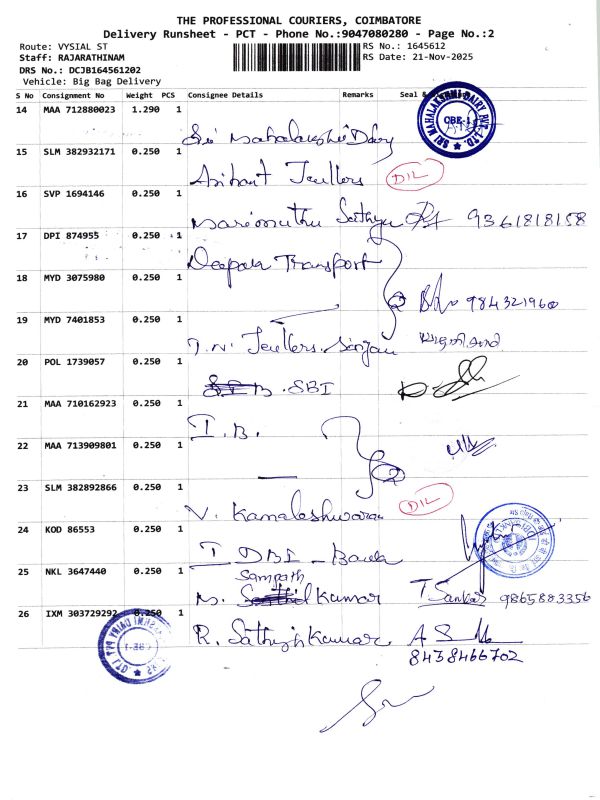 THE PROFESSIONAL COURIERS, COIMBATORE
Delivery Runsheet - PCT - Phone No.:9047080280 - Page No.:2
Route: VYSIAL ST
RS No.: 1645612
Staff: RAJARATHINAM
RS Date: 21-Nov-2025
DRS No.: DCJB164561202
Vehicle: Big Bag Delivery
S No Consignment No Weight PCS Consignee Details Remarks Seal &
14 MAA 712880023 1.290 1 Sri Mahalakshmi Dairy
SRI MAHALAKSHMI DAIRY PVT. LTD. CBE-1
15 SLM 382932171 0.250 1 Arihant Jewllers DIL
16 SVP 1694146 0.250 1 Marimuthu Sathya 9361818158
17 DPI 874955 0.250 1 Deepak Transport
18 MYD 3075980 0.250 1 984321960
19 MYD 7401853 0.250 1 T.N. Jewllers
20 POL 1739057 0.250 1 SBI
21 MAA 710162923 0.250 1 I.B.
22 MAA 713909801 0.250 1 —
23 SLM 382892866 0.250 1 V. Kamaleshwaran DIL
24 KOD 86553 0.250 1 IDBI - Bank
25 NKL 3647440 0.250 1 Sampath Kumar T Sankar 9865883356
26 IXM 303729292 0.250 1 R. Sathish Kumar
8438466702